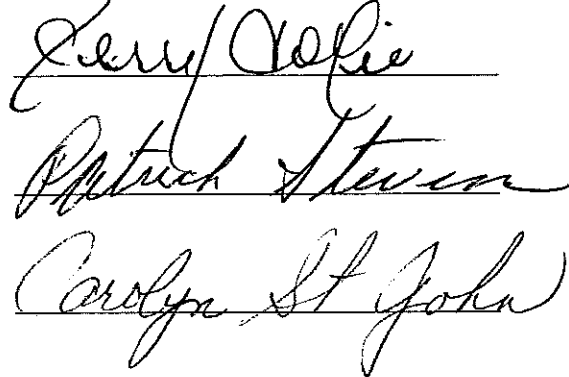 Kerry
Patrick Steven
Carolyn St John